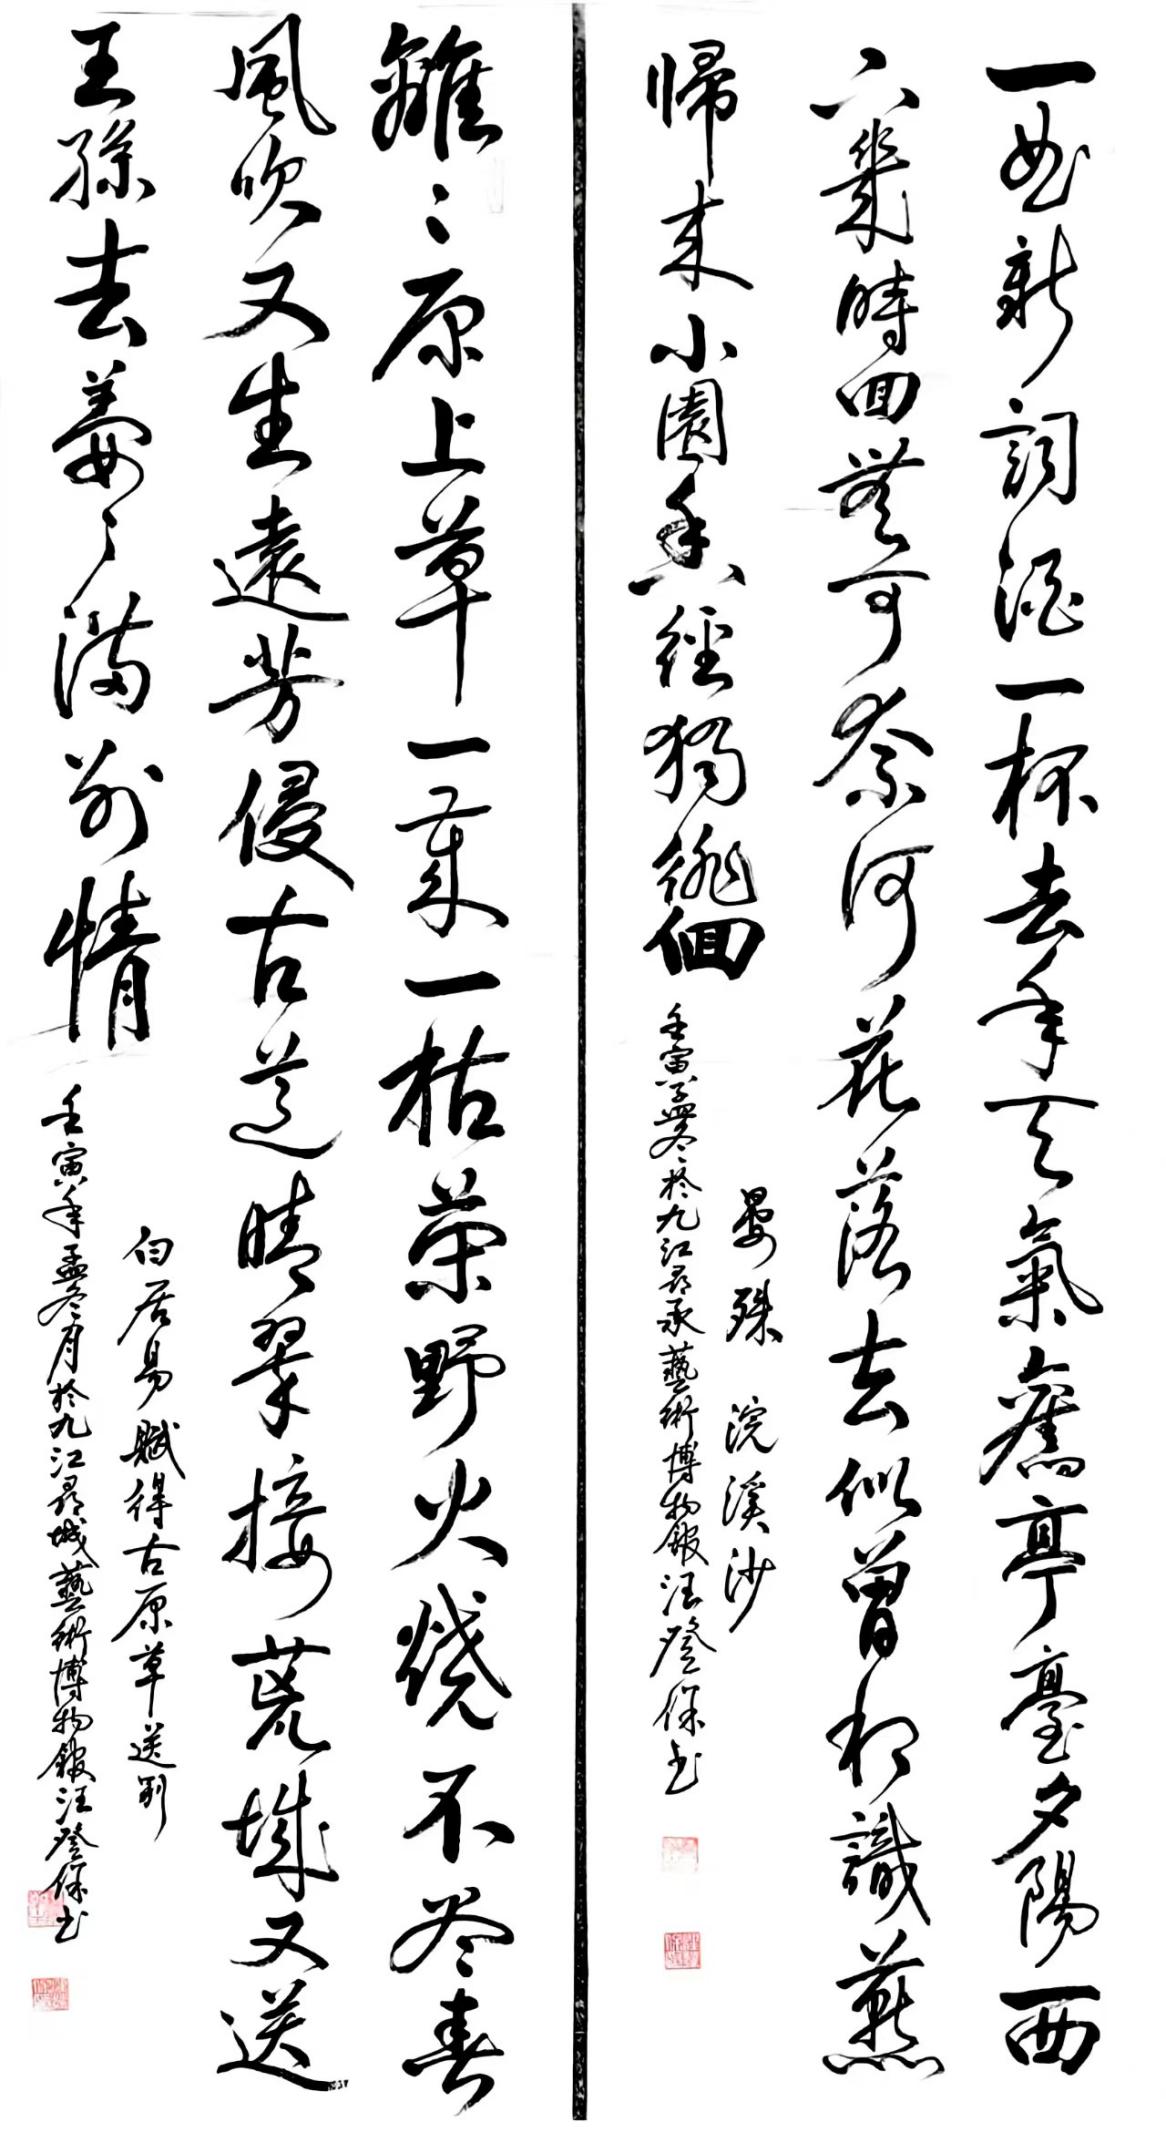 一曲新詞酒一杯去年天氣舊亭臺夕陽西
下幾時回無可奈何花落去似曾相識燕
歸來小園香徑獨徘徊
晏殊 浣溪沙
壬寅孟冬於九江尋承藝術博物館汪登保书
離々原上草一歲一枯荣野火燒不盡春
風吹又生遠芳侵古道晴翠接荒城又送
王孫去萋々滿別情
白居易賦得古原草送別
壬寅年孟冬月於九江尋城藝術博物館汪登保书